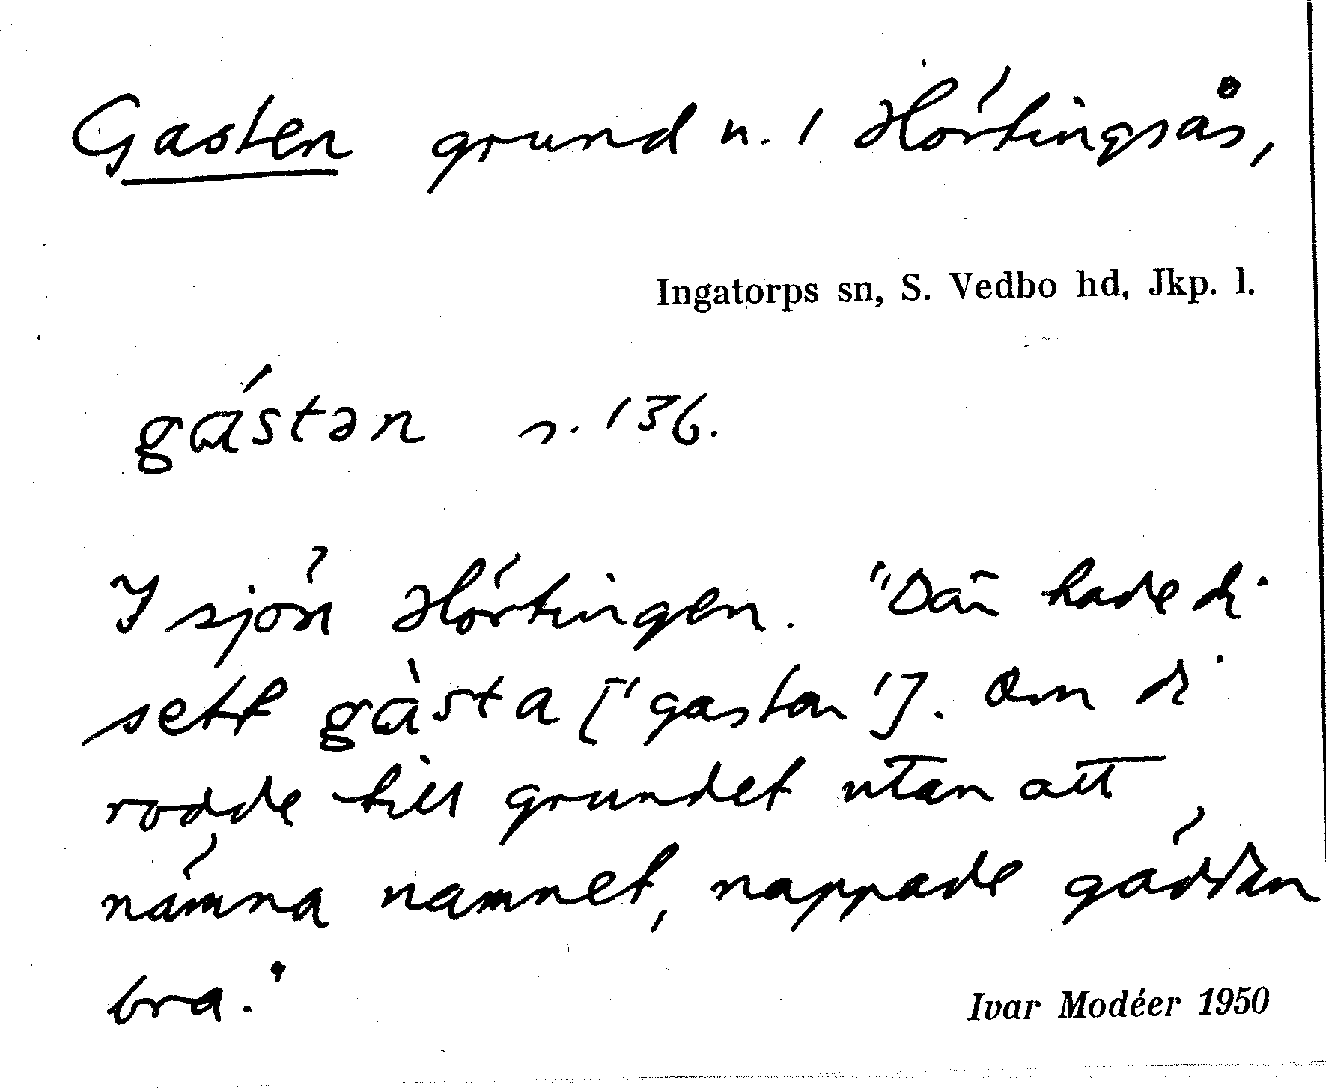 Gasten grund n. 1 Hörtingsås,
Ingatorps sn, S. Vedbo hd, Jkp. l.
gástən s. 136.
I sjön Hörtingen. "Där hade di
sett gàsta ['gastar']. Om di
rodde till grundet utan att
nämna namnet, nappade gäddan
bra."
Ivar Modéer 1950